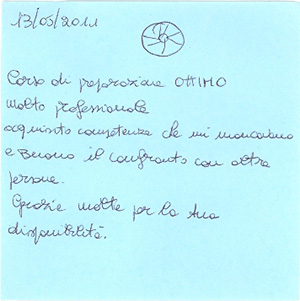 13/05/2011
Corso di preparazione OTTIMO
molto professionale
acquisito competenze che mi mancavano
e Buono il confronto con altre
persone.
Grazie molte per la tua
disponibilità.